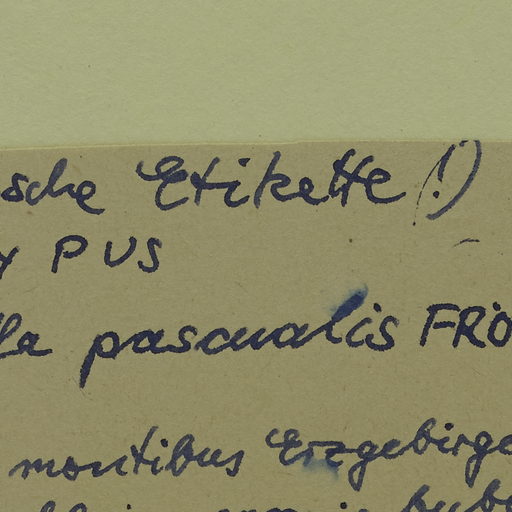 sche Etikette (!)
PUS
lla pascualis FRÖ
montibus Erzgebirge